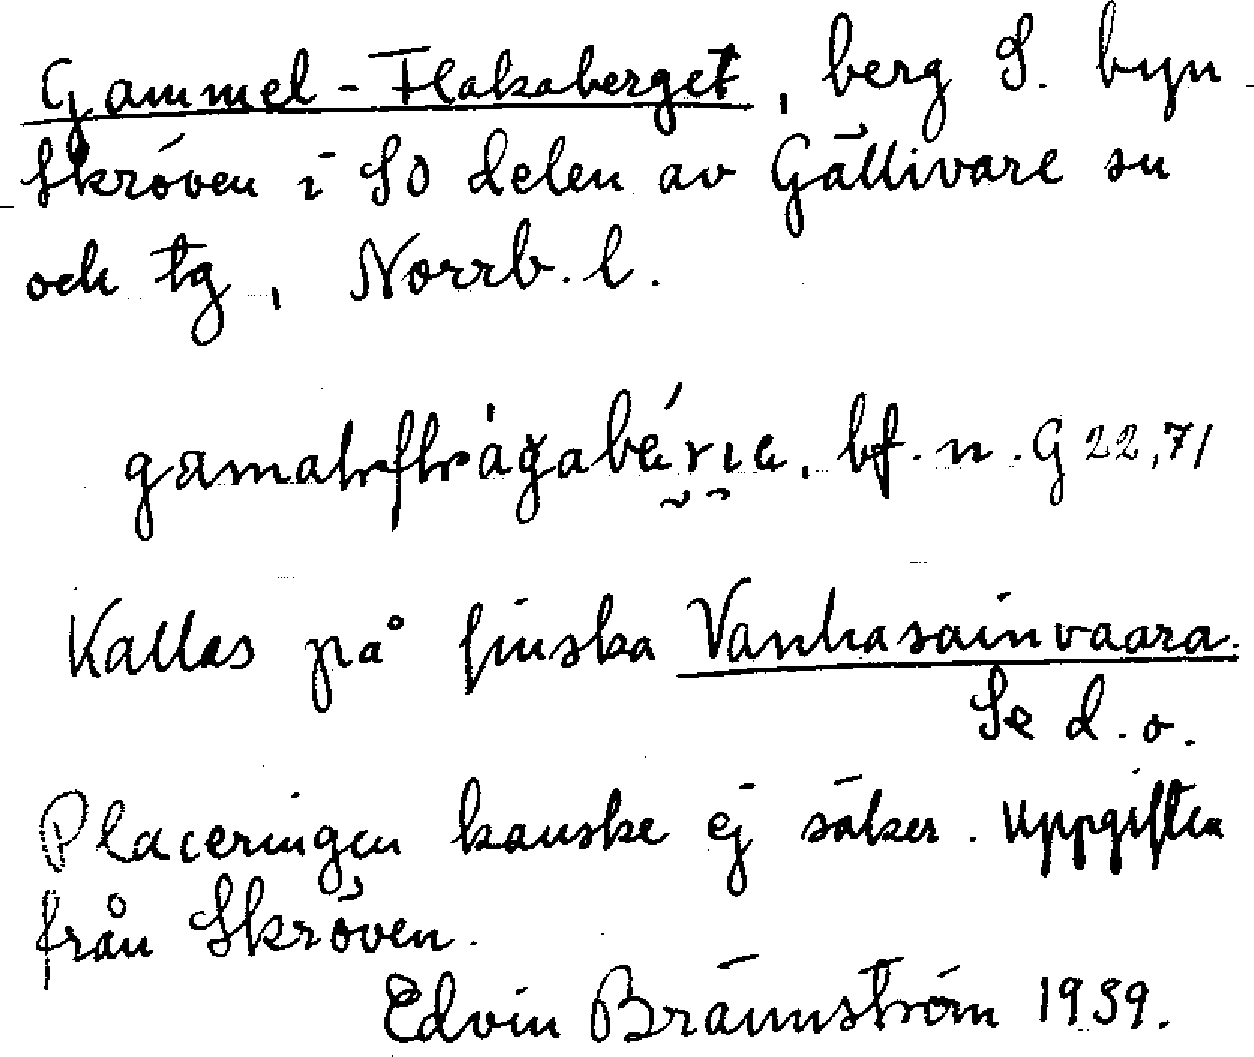 Gammel-Flakaberget, berg S. byn
Skröven i SO delen av Gällivare sn
och tg, Norrb. l.
bf. n. G 22,71
Kallas på finska Vanhasainvaara.
Se d. o.
Placeringen kanske ej säker. Uppgiften
från Skröven.
Edvin Brännström 1959.